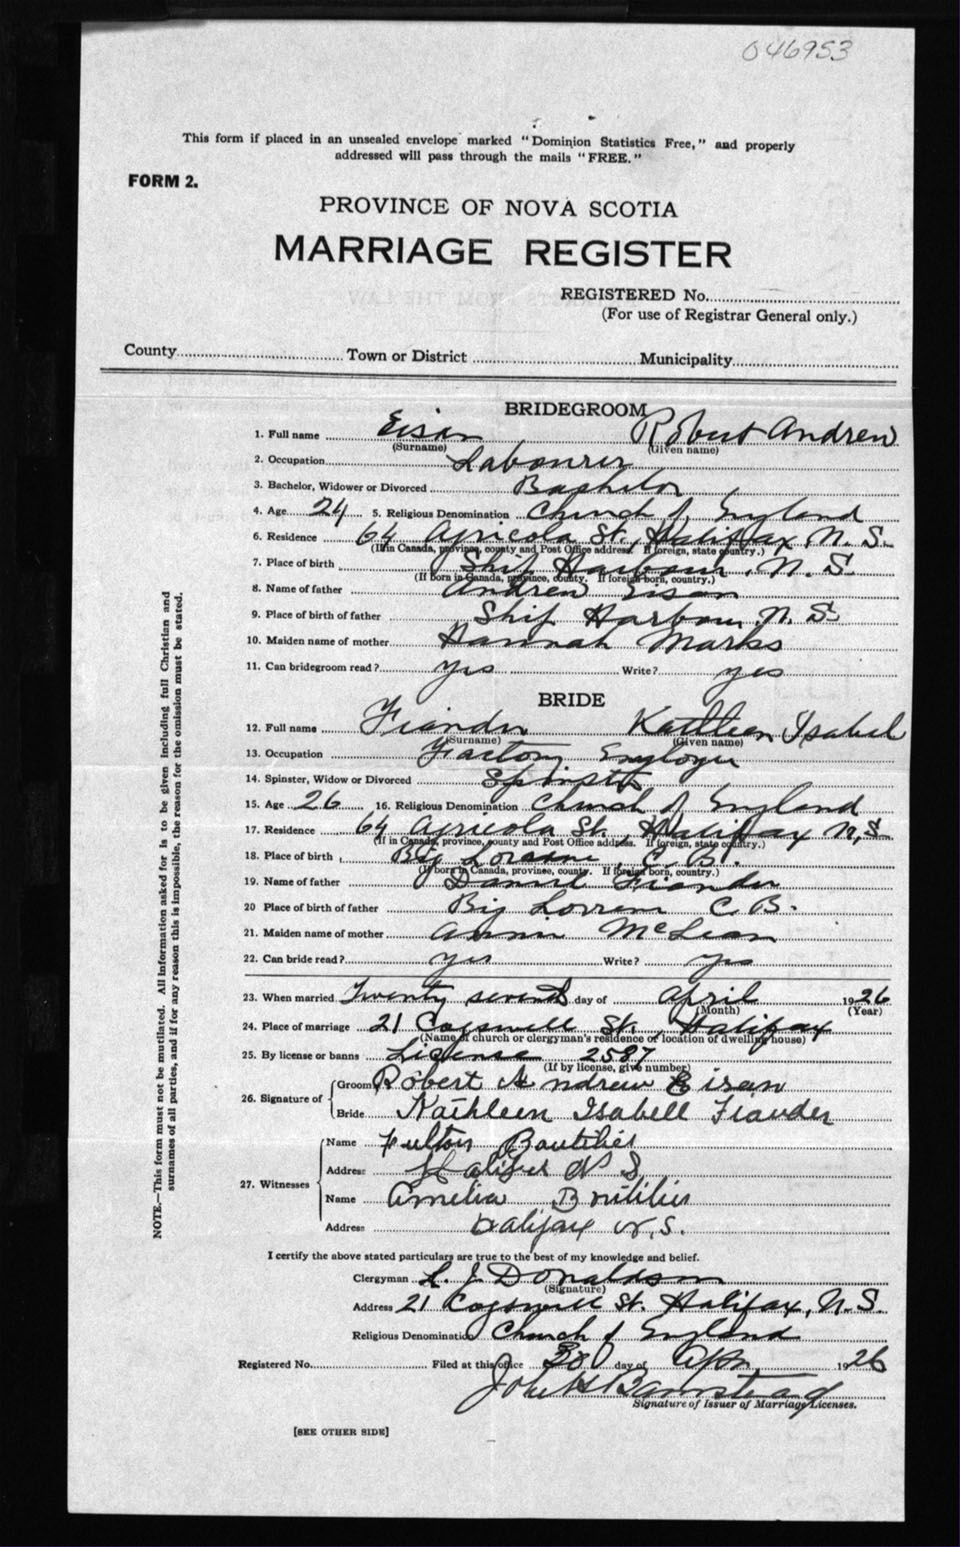 046953
This form if placed in an unsealed envelope marked "Dominion Statistics Free," and properly
addressed will pass through the mails "FREE."
FORM 2.
PROVINCE OF NOVA SCOTIA
MARRIAGE REGISTER
REGISTERED No.
(For use of Registrar General only.)
County Town or District Municipality
BRIDEGROOM
1. Full name Eisan Robert Andrew
(Surname) (Given name)
2. Occupation Labourer
3. Bachelor, Widower or Divorced Bachelor
4. Age 24 5. Religious Denomination Church of England
6. Residence 64 Agricola St., Halifax N. S.
(If in Canada, province, county and Post Office address. If foreign, state country.)
7. Place of birth Ship Harbour, N. S.
(If born in Canada, province, county. If foreign born, country.)
8. Name of father Andrew Eisan
9. Place of birth of father Ship Harbour, N. S.
10. Maiden name of mother Hannah Marks
11. Can bridegroom read? yes Write? yes
BRIDE
12. Full name Fiander Kathleen Isabel
(Surname) (Given name)
13. Occupation Factory Employee
14. Spinster, Widow or Divorced Spinster
15. Age 26 16. Religious Denomination Church of England
17. Residence 64 Agricola St., Halifax N. S.
(If in Canada, province, county and Post Office address. If foreign, state country.)
18. Place of birth Big Loraine, C. B.
(If born in Canada, province, county. If foreign born, country.)
19. Name of father Daniel Fiander
20 Place of birth of father Big Lorren C. B.
21. Maiden name of mother Annie McLean
22. Can bride read? yes Write? yes
23. When married Twenty seventh day of April 1926
(Month) (Year)
24. Place of marriage 21 Cogswell St., Halifax
(Name of church or clergyman's residence or location of dwelling house)
25. By license or banns License 2587
(If by license, give number)
26. Signature of Groom Robert Andrew Eisan
Bride Kathleen Isabell Fiander
27. Witnesses Name Fulton Boutilier
Address Halifax N S
Name Amelia Boutilier
Address Halifax N. S.
I certify the above stated particulars are true to the best of my knowledge and belief.
Clergyman L. J. Donaldson
(Signature)
Address 21 Cogswell St. Halifax, N. S.
Religious Denomination Church of England
Registered No. Filed at this office 30 day of Apr. 1926
John H Barnstead
Signature of Issuer of Marriage Licenses.
[SEE OTHER SIDE]
NOTE.—This form must not be mutilated. All information asked for is to be given including full Christian and
surnames of all parties, and if for any reason this is impossible, the reason for the omission must be stated.